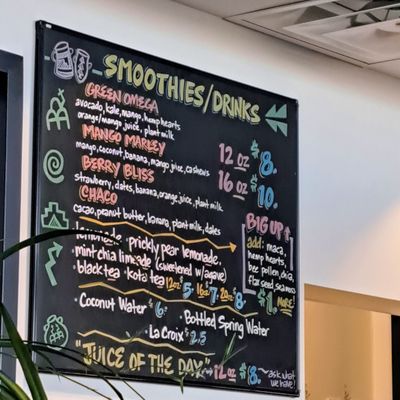 SMOOTHIES/DRINKS
GREEN OMEGA
avocado, kale, mango, hemp hearts
orange/mango juice, plant milk
MANGO MARLEY
mango, coconut, banana, mango juice, cashews
BERRY BLISS
strawberry, dates, banana, orange juice, plant milk
CHACO
cacao, peanut butter, banana, plant milk, dates
12oz $8.
16oz $10.
BIG UP
add: maca,
hemp hearts,
bee pollen, chia,
flax seed, sea moss
$1. MORE!
lemonade · prickly pear lemonade,
mint chia limeade (sweetened w/agave)
· black tea · kota tea 12oz $5. 16oz $7. $8.
· Coconut Water $6 · Bottled Spring Water
· La Croix $2.5
"JUICE OF THE DAY" 12oz $8. ask what
we have!